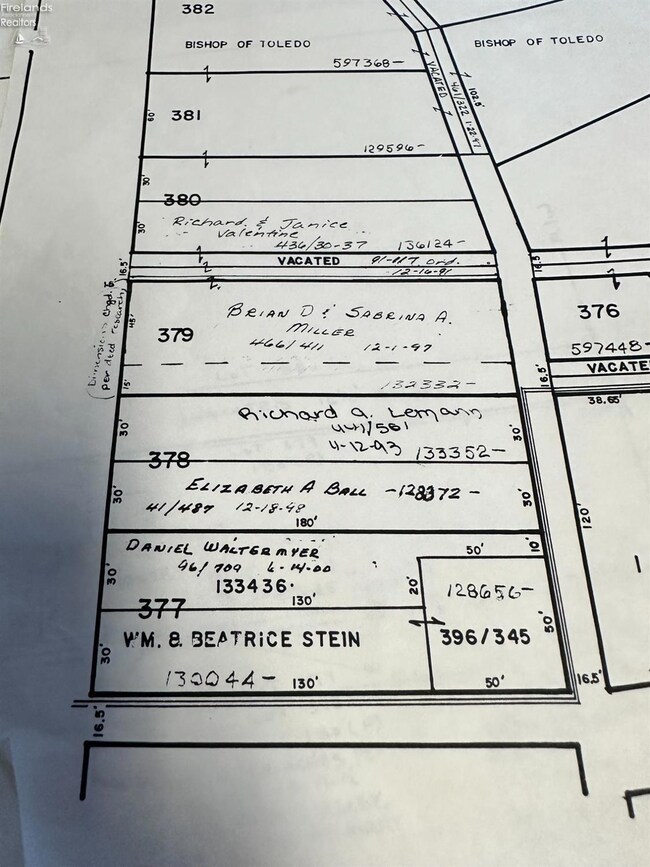 Firelands
Realtors
382
BISHOP OF TOLEDO
BISHOP OF TOLEDO
597368-
VACATED
461/322 1-22-97
102.8'
381
60'
129596-
30'
380
30'
Richard & Janice
Valentine
436/30-37 136124-
16.5'
VACATED 91-117 ord.
12-16-91
16.5'
Dimensions chgd.
per deed research
45'
379
BRIAN D & SABRINA A.
MILLER
466/411 12-1-97
15'
132332-
376
597448-
VACATE
16.5'
38.65'
Richard A. Lemann
441/561
4-12-93 133352-
30'
30'
378
ELIZABETH A BALL -128372-
41/487 12-18-98
30'
30'
180'
120'
DANIEL WALTERMYER
96/709 6-14-00
133436.
30'
130'
50'
10'
20'
128656-
396/345
50'
377
WM. & BEATRICE STEIN
30'
130044-
130'
50'
16.5'
16.5'
1